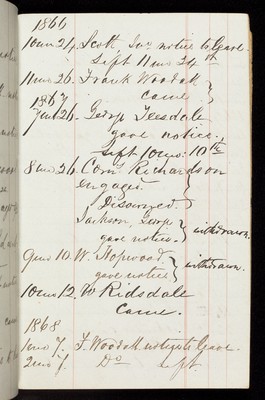 1866
10mo 24. Scott Jas notice to leave.
Left 11mo 24th
11mo 26. Frank Woodall
came
1867
7mo 26. George Teesdale
gave notice.
Left 10mo: 10th
8mo 26. Corn Richardson
engaged.
Discovered
Jackson, George
gave notice. } withdrawn.
9mo 10. W. Hopwood
gave notice } withdrawn.
10mo 12. W Ridsdale
Came.
1868
1mo 7. F. Woodall notice to leave.
2mo 7. Do left